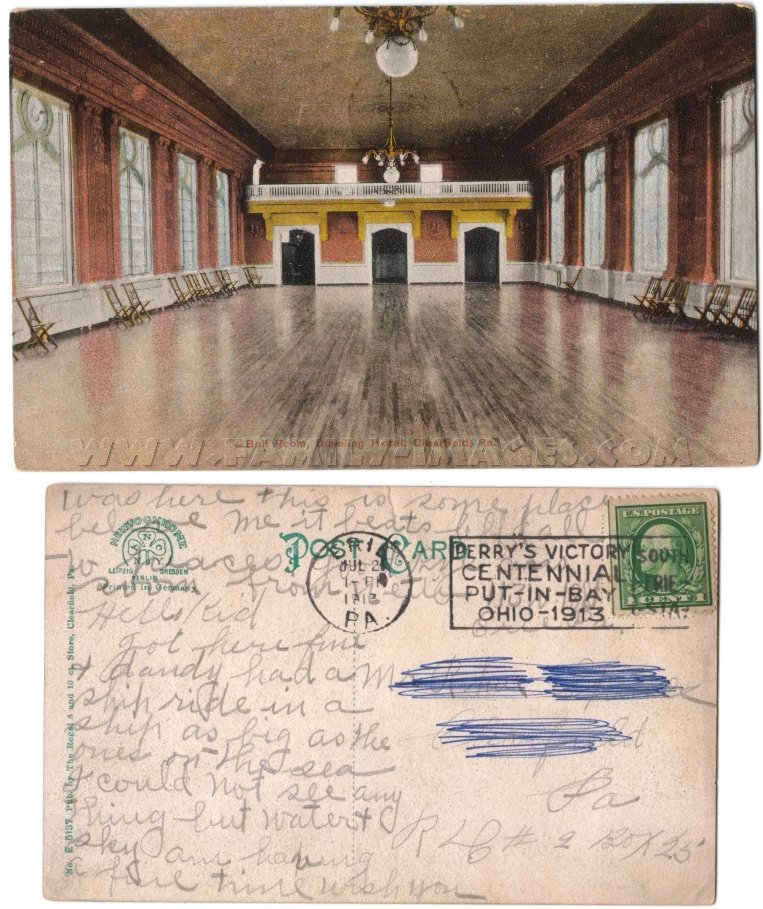 Ball Room, Dimeling Hotel, Clearfield, Pa.
WWW.FAMILY-IMAGES.COM
was here & this is some place
believe me it beats
to
from
NEWVOCHROME
LEIPZIG DRESDEN
BERLIN
Printed in Germany
POST CARD
ERIE
JUL 2
1913
PA.
PERRY'S VICTORY
CENTENNIAL
PUT-IN-BAY
OHIO-1913
SOUTH
ERIE
STA.
U.S. POSTAGE
1 CENT 1
Hello Kid
Got here fine
& dandy had a
ship ride in a
ship as big as the
ones on the sea
& could not see any
thing but water &
sky am having
a fine time wish you
Pa
# 2 Box 25
No. E 5137. Pub. by The Regal 5 and 10 ct. Store, Clearfield, Pa.